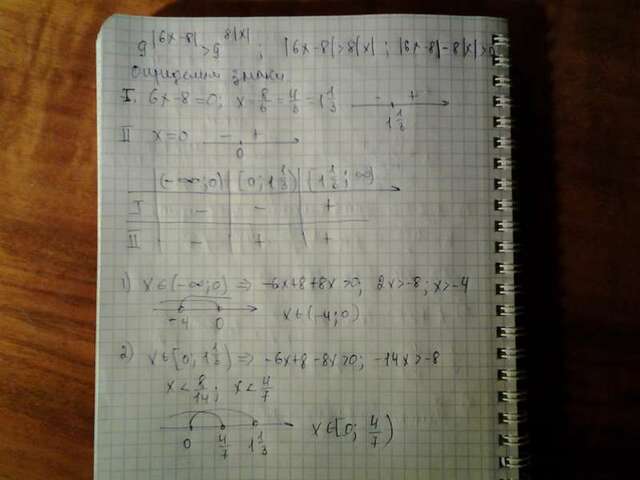 9^|6x-8| > 9^8|x| ; |6x-8| > 8|x| ; |6x-8|-8|x| > 0
Определим знаки
I. 6x-8=0; x=8/6=4/3=1 1/3 - + 1 1/3
II x=0 - + 0
(-∞;0) [0; 1 1/3) (1 1/3; ∞)
I - - +
II - + +
1) x∈(-∞;0) ⇒ -6x+8+8x>0; 2x>-8; x>-4
-4 0 x∈(-4;0)
2) x∈[0; 1 1/3) ⇒ -6x+8-8x>0; -14x>-8
x < 8/14; x < 4/7
0 4/7 1 1/3 x∈[0; 4/7)